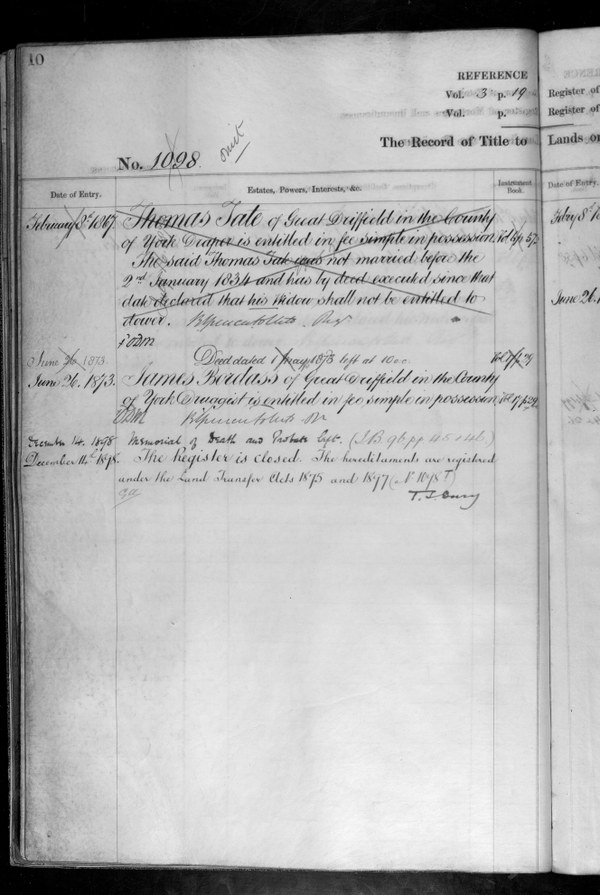 10
REFERENCE
Vol. 3 p. 19
Vol. p.
omit
The Record of Title to
No. 1098
Date of Entry.
Estates, Powers, Interests, &c.
Instrument Book.
February 8th 1867 Thomas Tate of Great Driffield in the County
of York Draper is entitled in fee simple in possession
The said Thomas Tate was not married before the
2nd January 1834 and has by deed executed since that
date declared that his widow shall not be entitled to
dower.
June 26 1873. Deed dated 1 May 1873 left at 10
June 26. 1873. James Bordass of Great Driffield in the County
of York Druggist is entitled in fee simple in possession
December 14. 1898 Memorial of Death and Probate left. (I.B. 96 pp 45 & 46.)
December 14th 1898. The Register is closed. The hereditaments are registered
under the Land Transfer Acts 1875 and 1897
Register of
Register of
Lands or
Date of Entry.
Feby 8th
June 26.